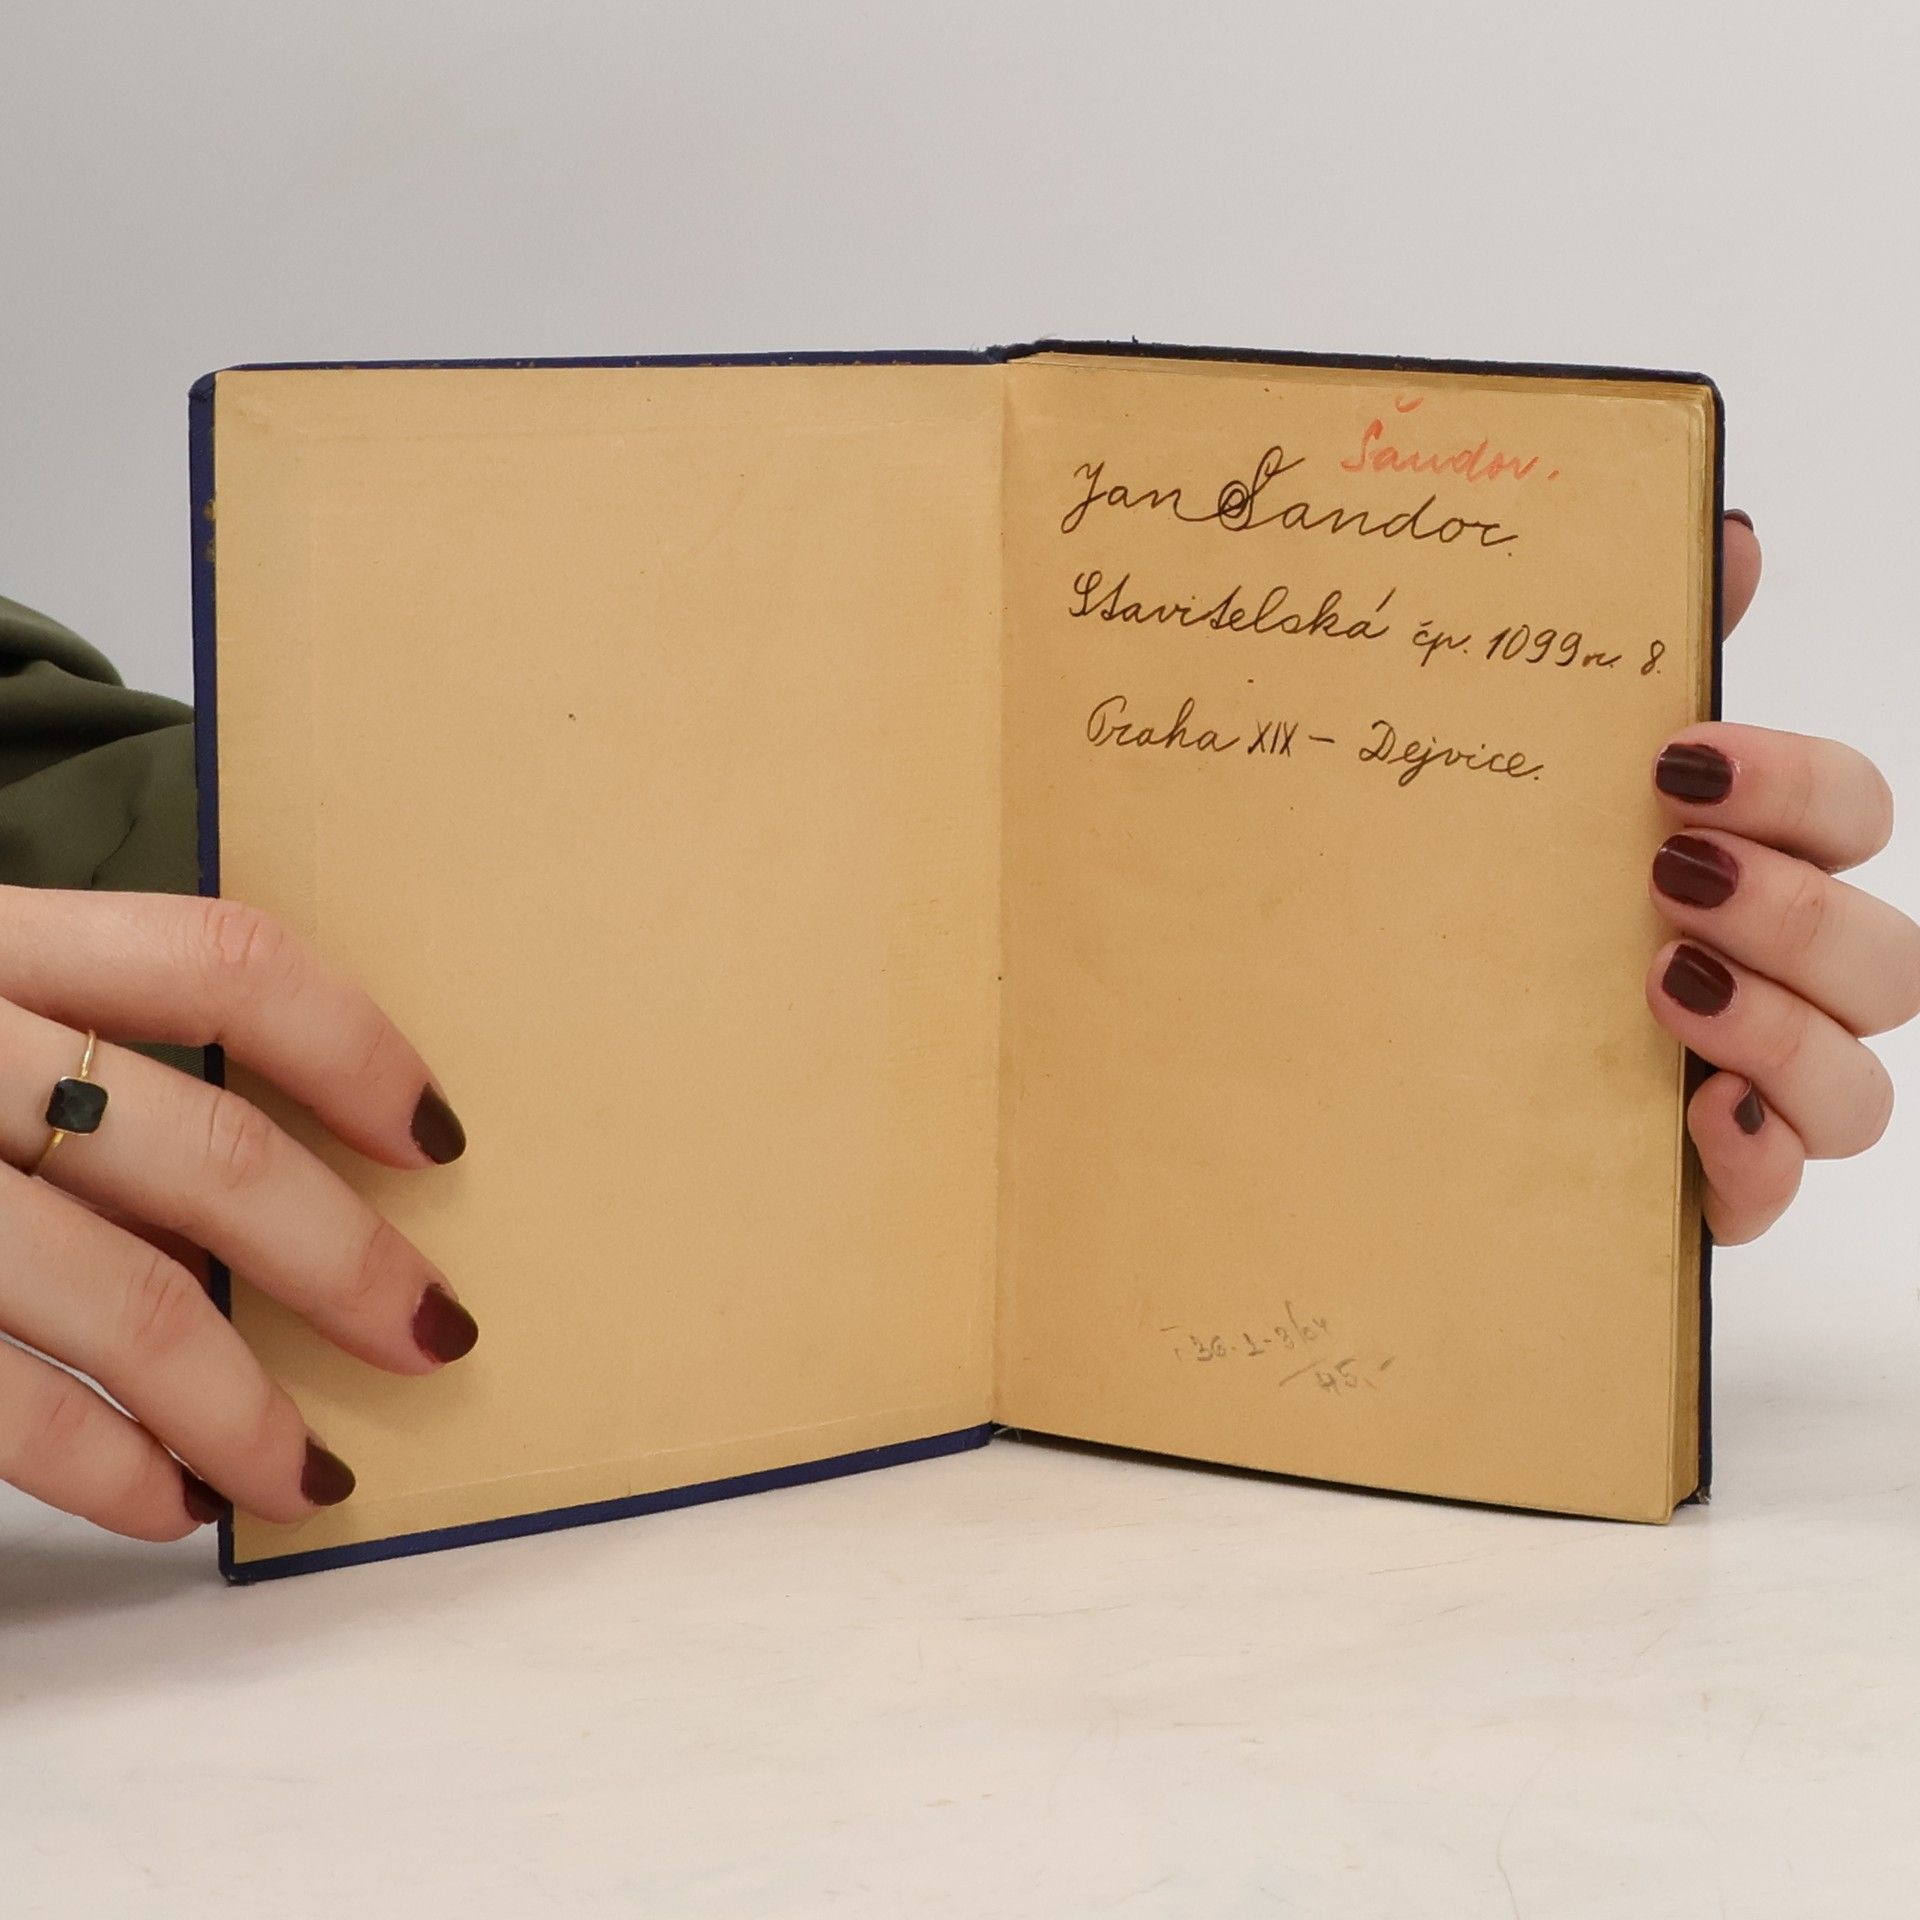 Šandor.
Jan Šandor.
Stavitelská čp. 1099 8.
Praha XIX — Dejvice.
45.-